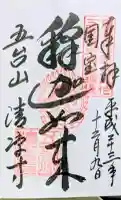 奉拝
平成二十三年
十二月九日
国宝
釈迦如来
五台山 清凉寺